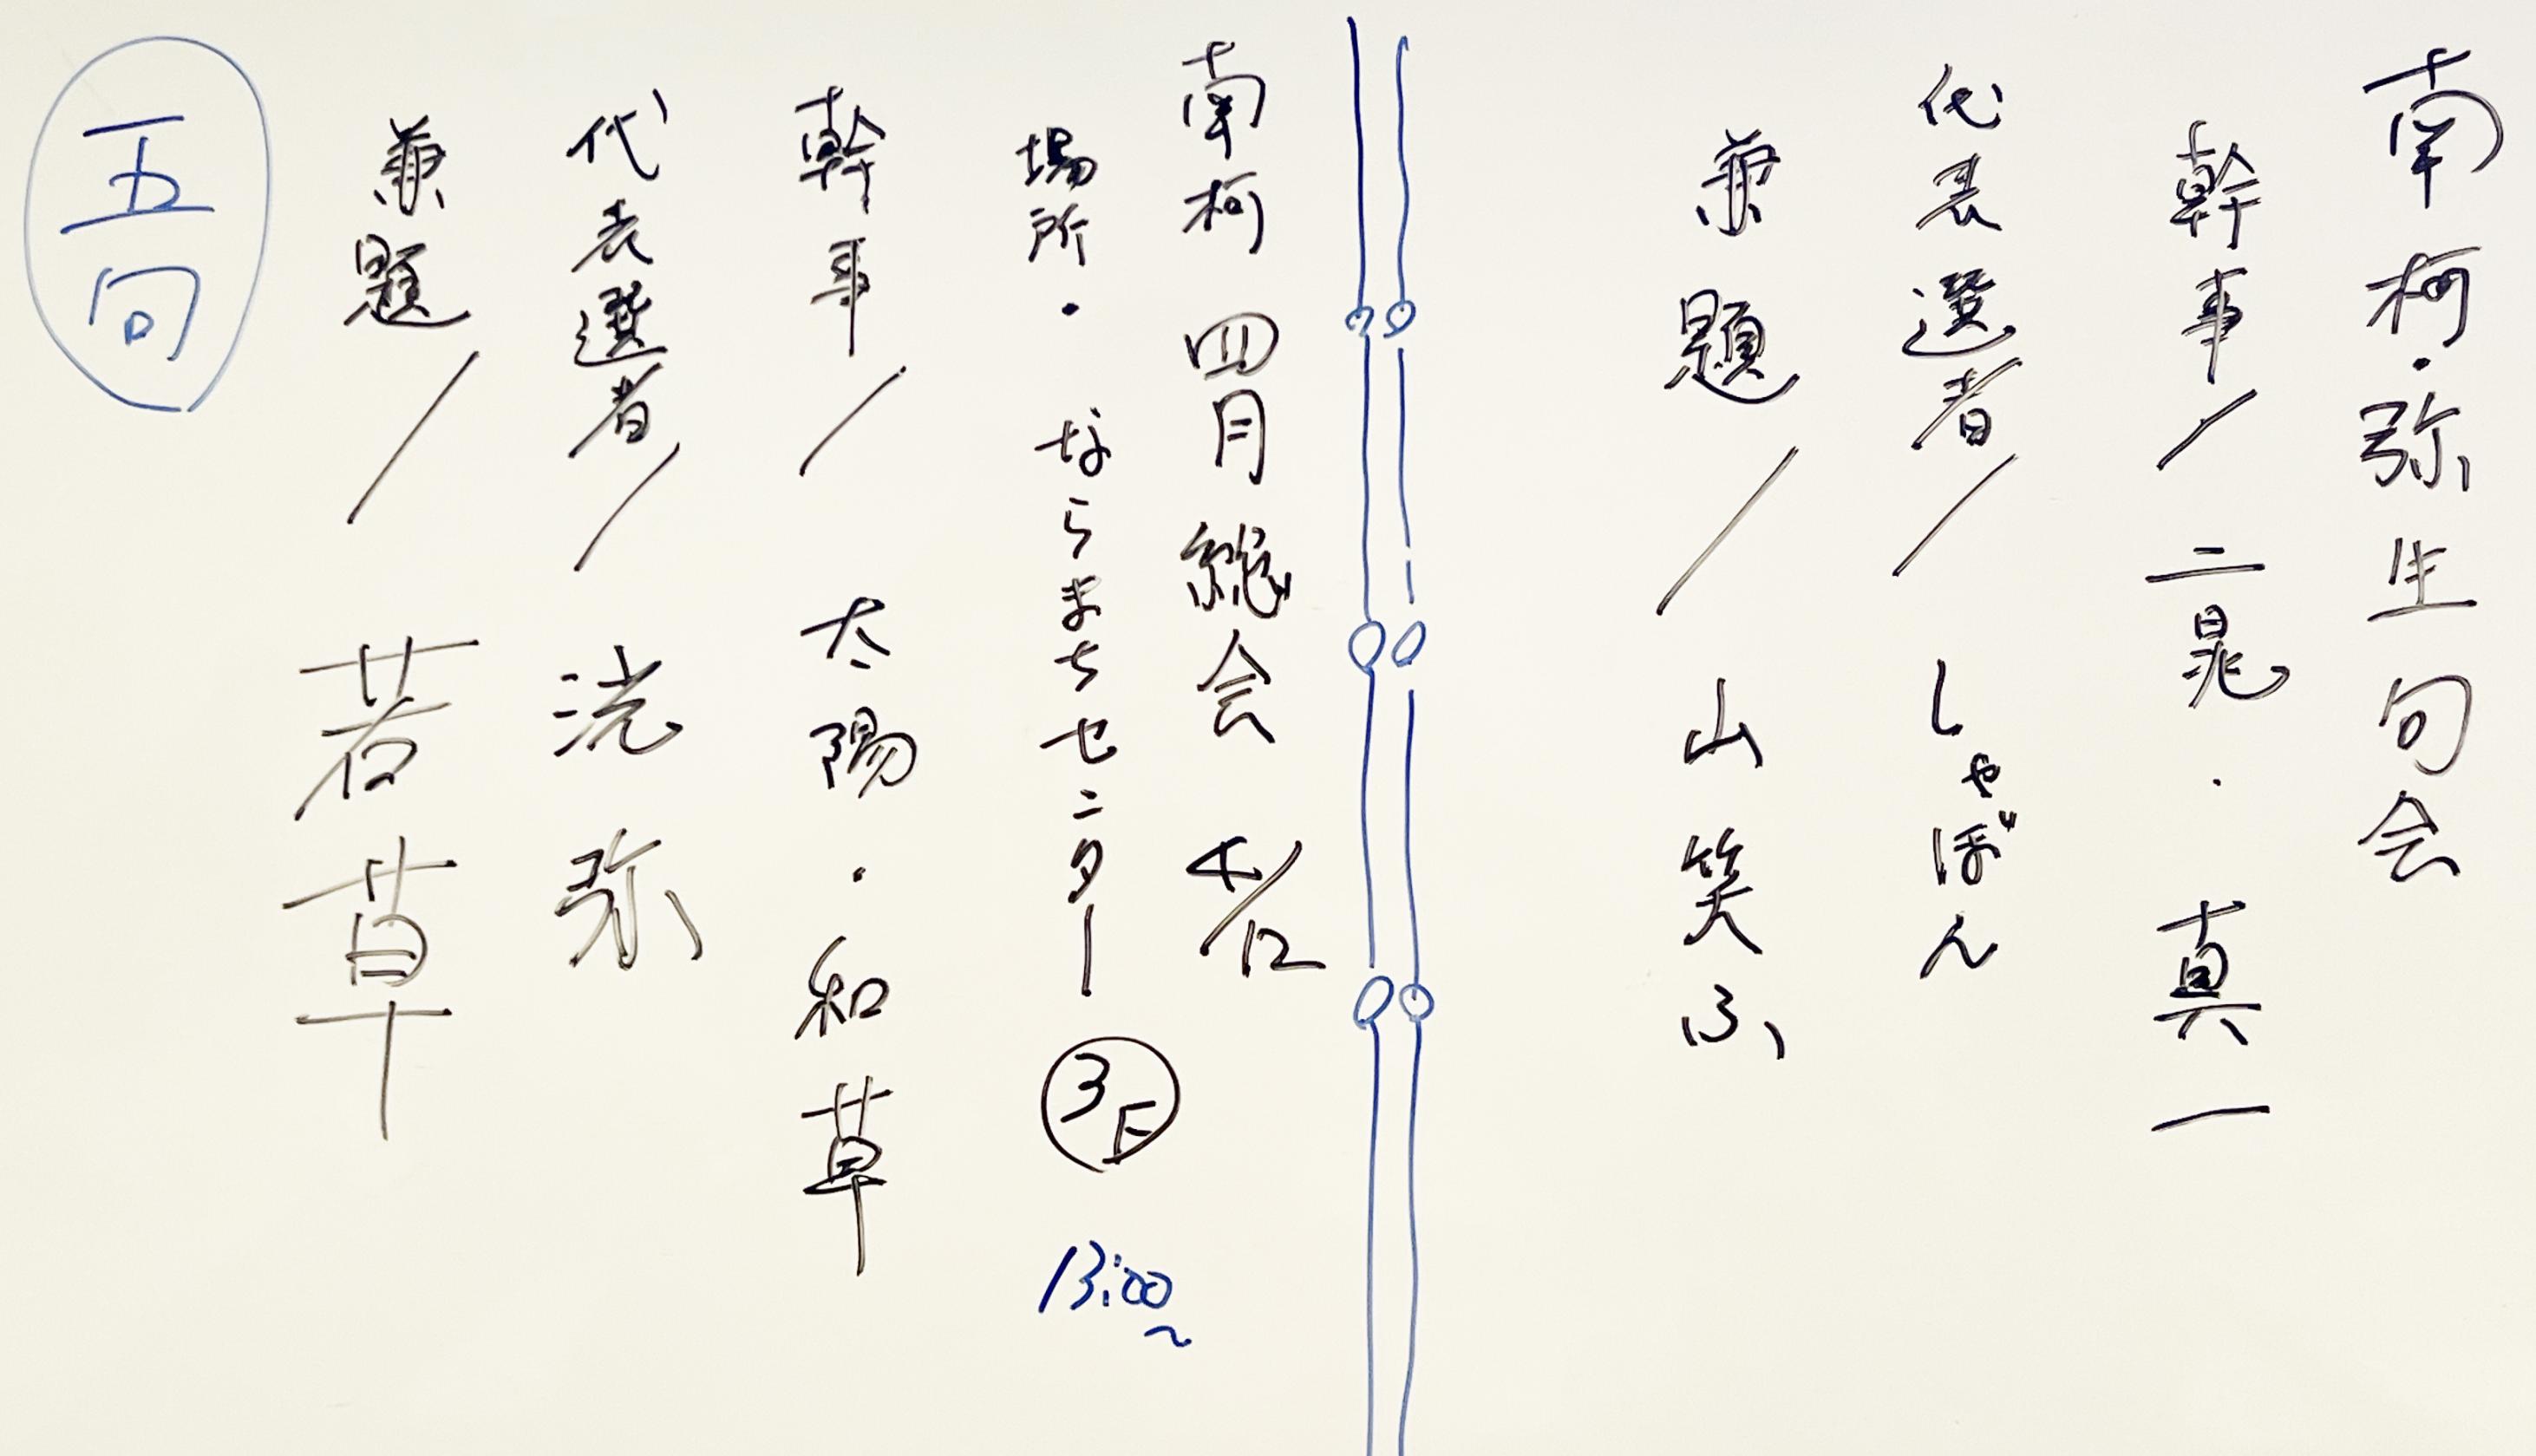 南柯・弥生句会
幹事／二晁・真一
代表選者／しゃぼん
兼題／山笑ふ
南柯 四月総会 4/12
場所・ならまちセンター 3F 13:00～
幹事／太陽・和草
代表選者／洸弥
兼題／若草
五句